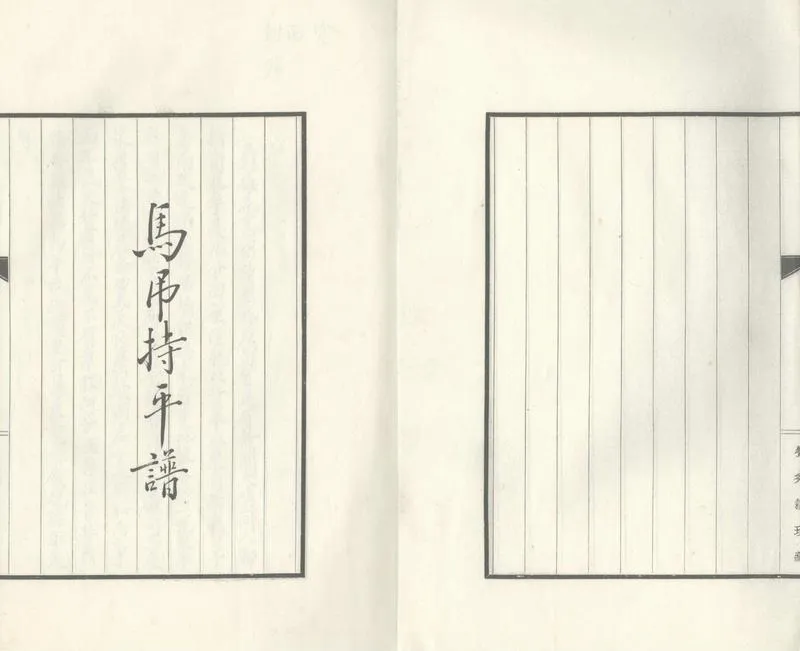 馬吊持平譜